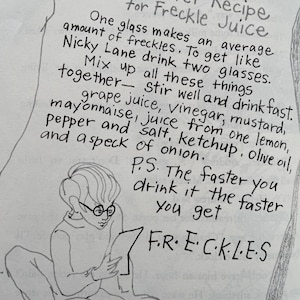 Recipe
for Freckle Juice
One glass makes an average
amount of freckles. To get like
Nicky Lane drink two glasses.
Mix up all these things
together— Stir well and drink fast.
grape juice, vinegar, mustard,
mayonnaise, juice from one lemon,
pepper and salt, ketchup, olive oil,
and a speck of onion.
P.S. The faster you
drink it the faster
you get
F·R·E·C·K·L·E·S